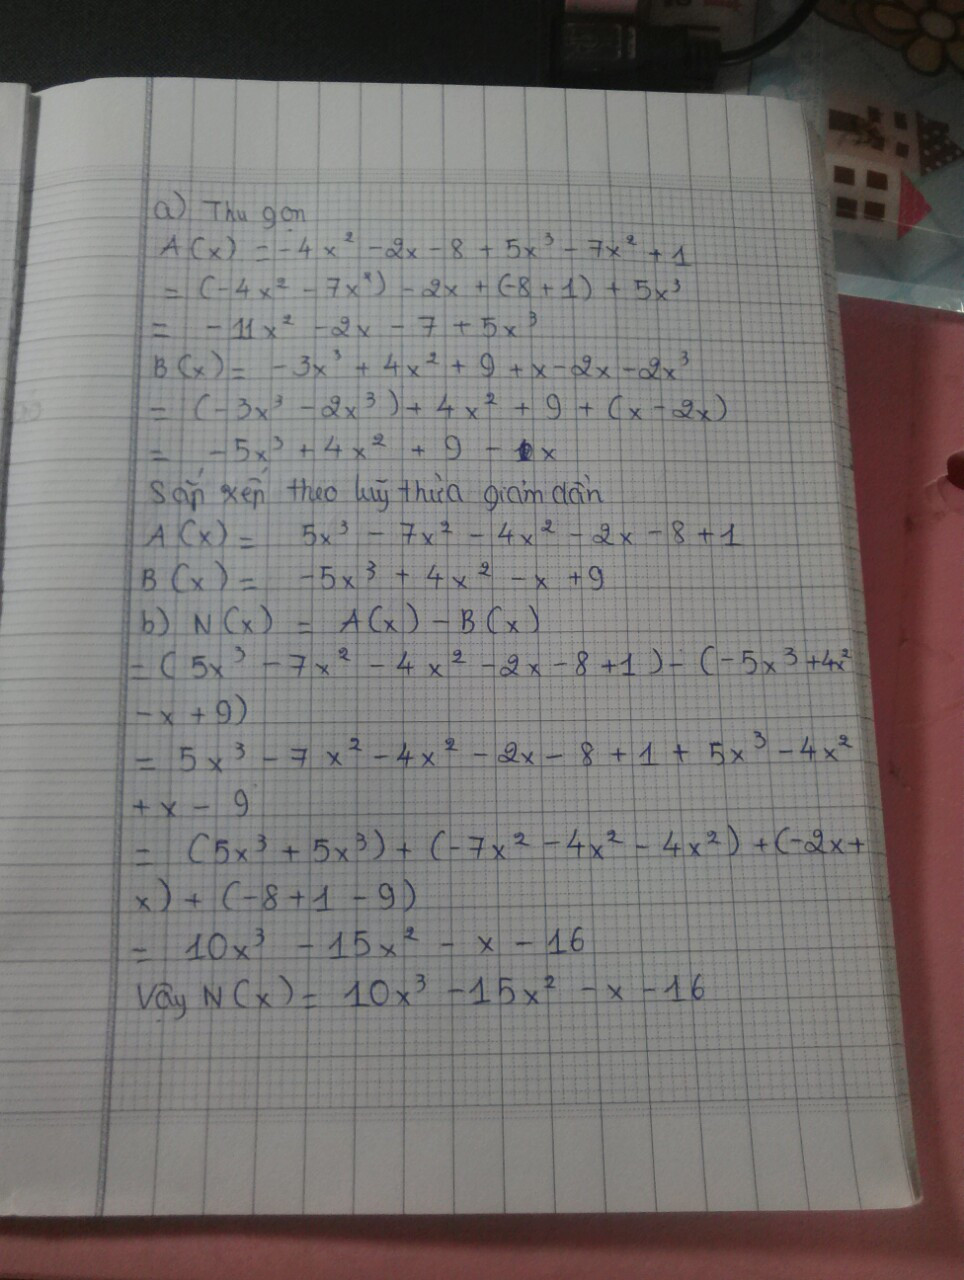 a) Thu gọn
A(x) = -4x² - 2x - 8 + 5x³ - 7x² + 1
= (-4x² - 7x²) - 2x + (-8 + 1) + 5x³
= -11x² - 2x - 7 + 5x³
B(x) = -3x³ + 4x² + 9 + x - 2x - 2x³
= (-3x³ - 2x³) + 4x² + 9 + (x - 2x)
= -5x³ + 4x² + 9 - 1x
Sắp xếp theo luỹ thừa giảm dần
A(x) = 5x³ - 7x² - 4x² - 2x - 8 + 1
B(x) = -5x³ + 4x² - x + 9
b) N(x) = A(x) - B(x)
= (5x³ - 7x² - 4x² - 2x - 8 + 1) - (-5x³ + 4x²
- x + 9)
= 5x³ - 7x² - 4x² - 2x - 8 + 1 + 5x³ - 4x²
+ x - 9
= (5x³ + 5x³) + (-7x² - 4x² - 4x²) + (-2x +
x) + (-8 + 1 - 9)
= 10x³ - 15x² - x - 16
Vậy N(x) = 10x³ - 15x² - x - 16